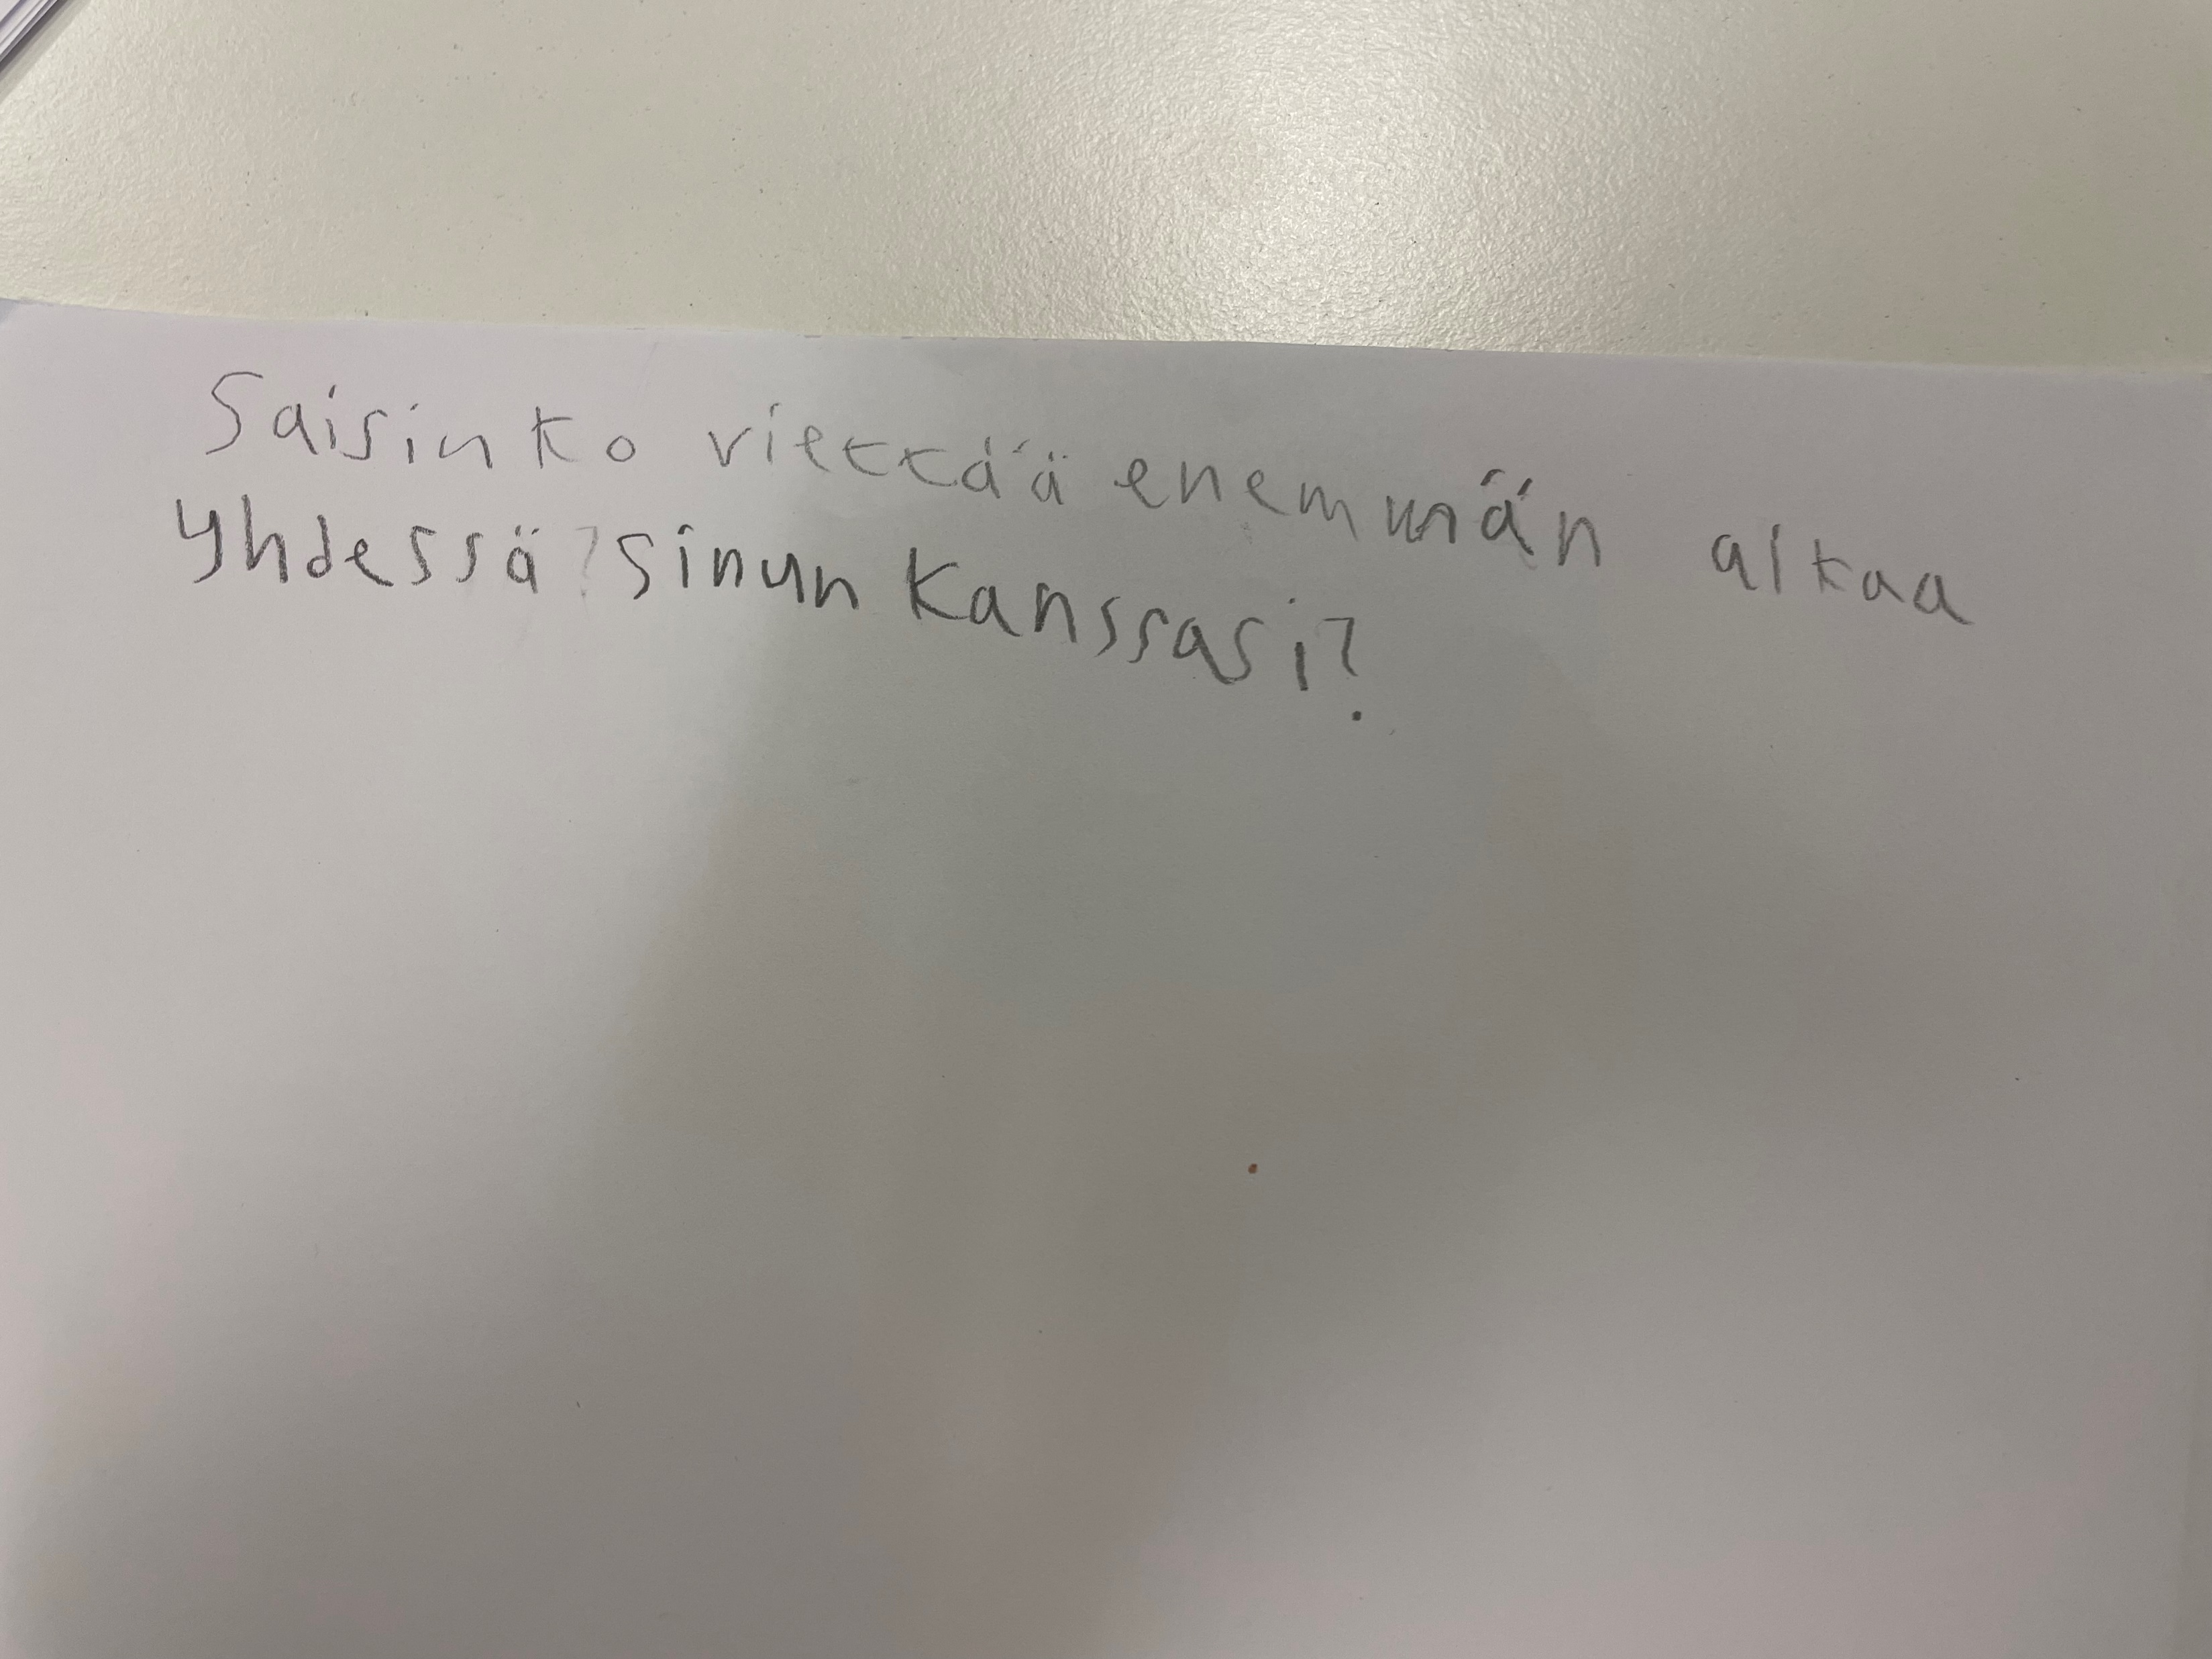 Saisinko viettää enemmän aikaa
yhdessä? sinun kanssasi?